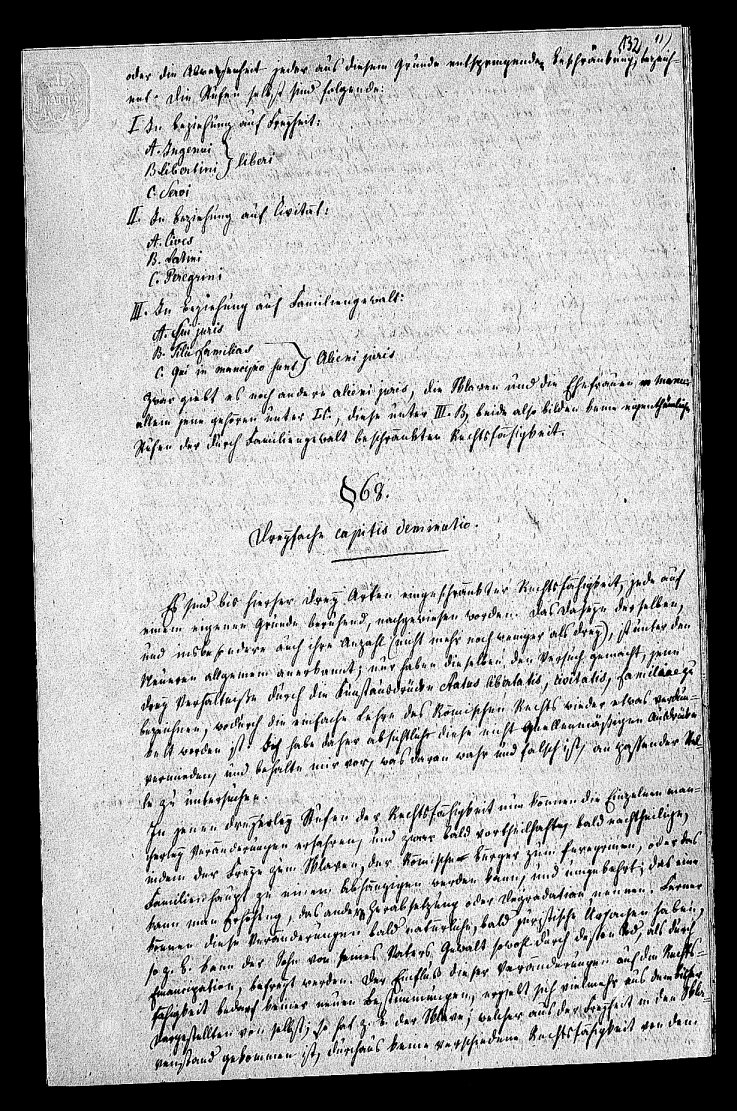 (132) 11)
oder die Abwesenheit jeder aus diesem Grunde entspringenden Beschränkung, bezeich-
net. Die Stufen selbst sind folgende:
I. In Beziehung auf Freyheit:
A. Ingenui
B. Libertini } liberi
C. Servi
II. In Beziehung auf Civität:
A. Cives
B. Latini
C. Peregrini
III. In Beziehung auf Familiengewalt:
A. Sui juris
B. Filii familias
C. Qui in mancipio sunt } Alieni juris
Zwar giebt es noch andere alieni juris, die Sklaven und die Ehefrauen in manu;
allein jene gehören unter I. C., diese unter III. B, beide also bilden keine eigenthümliche
Stufen der durch Familiengewalt beschränkten Rechtsfähigkeit.
§ 68.
Dreyfache capitis deminutio.
Es sind bis hierher drey Arten eingeschränkter Rechtsfähigkeit, jede auf
einem eigenen Grunde beruhend, nachgewiesen worden. Das Daseyn derselben,
und insbesondere auch ihre Anzahl (nicht mehr noch weniger als drey), ist unter den
Neueren allgemein anerkannt; nur haben dieselben den Versuch gemacht, jene
drey Verhältnisse durch die Kunstausdrücke Status libertatis, civitatis, familiae zu
bezeichnen, wodurch die einfache Lehre des Römischen Rechts wieder etwas verdun-
kelt worden ist. Ich habe daher absichtlich diese nicht quellenmäßigen Ausdrücke
vermieden, und behalte mir vor, was daran wahr und falsch ist, an passender Stel-
le zu untersuchen.
In jenen dreyerley Stufen der Rechtsfähigkeit nun können die Einzelnen man-
cherley Veränderungen erfahren, und zwar bald vortheilhafte, bald nachtheilige,
indem der Freye zum Sklaven, der Römische Bürger zum Peregrinen, oder das
Familienhaupt zu einem Abhängigen werden kann, und umgekehrt; das eine
kann man Erhöhung, das andere Herabsetzung oder Degradation nennen. Ferner
können diese Veränderungen bald natürliche, bald juristische Ursachen haben,
so z. B. kann der Sohn von seines Vaters Gewalt sowohl durch dessen Tod, als durch
Emancipation, befreyt werden. Der Einfluß dieser Veränderungen auf die Rechts-
fähigkeit bedarf keiner neuen Bestimmungen, ergiebt sich vielmehr aus dem bisher
Dargestellten von selbst; so hat z. B. der Sklave, welcher aus der Freyheit in den Skla-
venstand gekommen ist, durchaus keine verschiedene Rechtsfähigkeit von dem